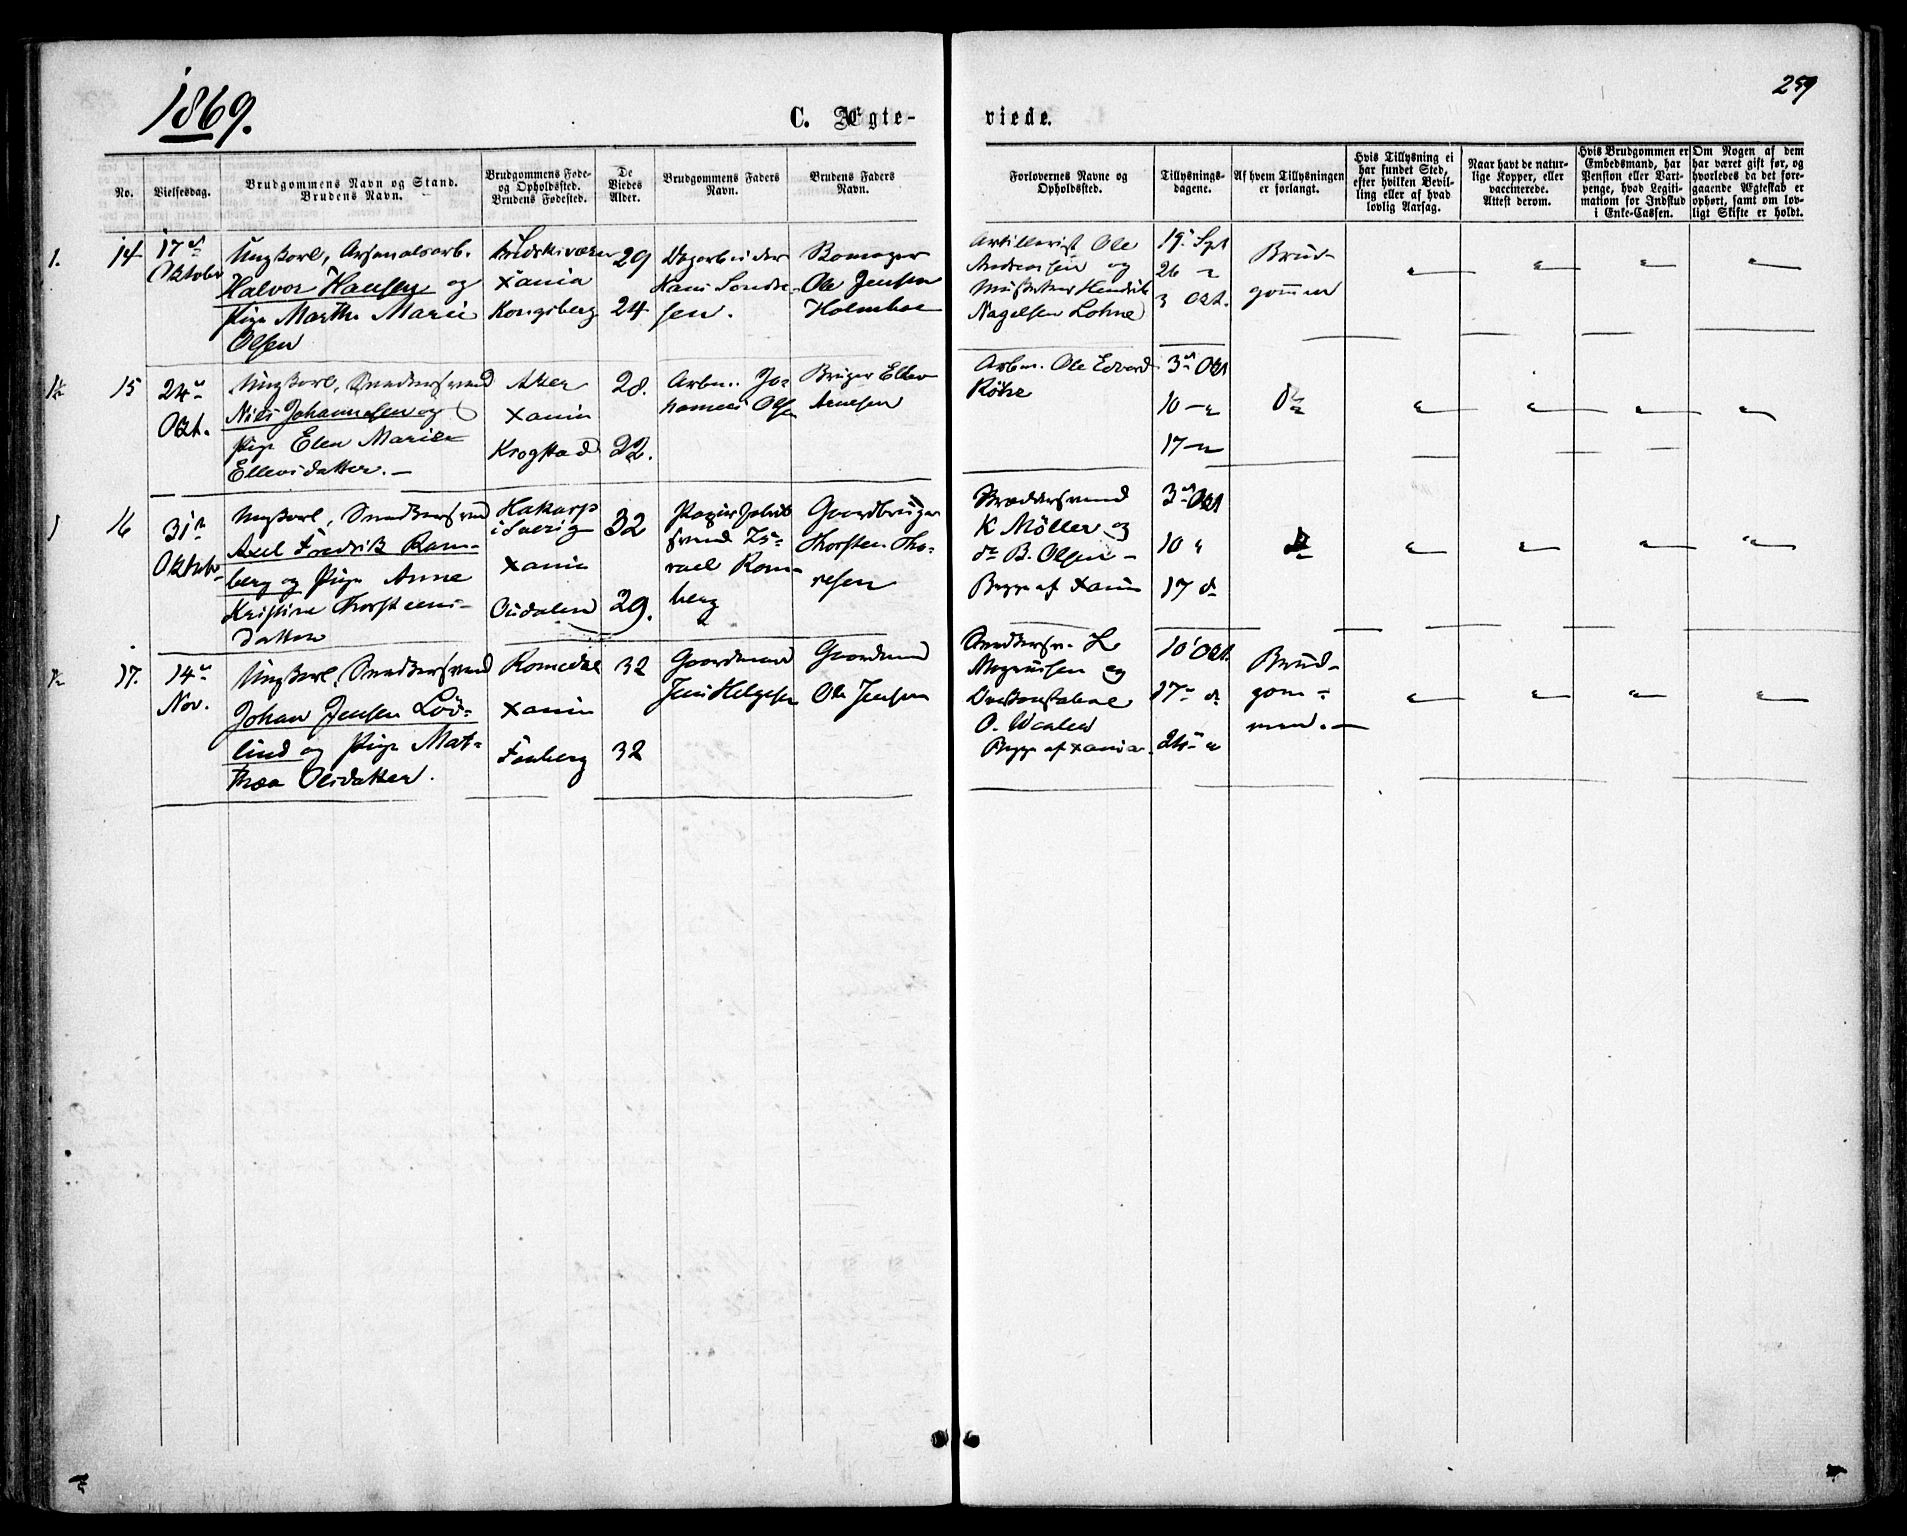 1869.
C. Ægte-
viede.
259
No.
Vielsesdag.
Brudgommens Navn og Stand.
Brudens Navn.
Brudgommens Føde-
og Opholdssted.
Brudens Fødested.
De
Viedes
Alder.
Brudgommens Faders
Navn.
Brudens Faders
Navn.
Forlovernes Navne og
Opholdssted.
Tillysnings-
dagene.
Af hvem Tillysningen
er forlangt.
Hvis Tillysning ei
har fundet Sted,
efter hvilken Bevil-
ling eller af hvad
lovlig Aarsag.
Naar havt de natur-
lige Kopper, eller
vaccinerede.
Attest derom.
Hvis Brudgommen er
Embedsmand, har
Pension eller Vart-
penge, hvad Legiti-
mation for Indskud
i Enke-Cassen.
Om Nogen af dem
har været gift før, og
hvorledes da det fore-
gaaende Ægteskab er
ophørt, samt om lov-
ligt Skifte er holdt.
1.
14
17de
Oktober
Ungkarl, Arsenalsarb.
Halvor Hansen og
Pige Marthe Marie
Olsen
Xania
Kongsberg
29
24
Dagarbeider
Hans Sondre-
sen.
Ole Jensen
Holmboe
Artillerist Ole
Andreassen og
Hendrik
Nagelsen Lohne
19 Spt
26 "
3 Okt.
Brud-
gommen
15
24de
Okt.
Ungkarl, Snedkersvend
Niels Johannesen og
Pige Elen Marie
Ellevsdatter. -
Aker
Xania
Krogstad
28.
22.
Arbm. Jo-
hannes Olsen
Bruger Ellev
Arnesen
Arbm. Ole Edvard
3de Okt
10 - "
17 - "
Do
16
31te
Oktober
Ungkarl, Snedkersvend
Axel Fredrik Ram-
berg og Pige Anne
Kristine Thorsteens-
datter
Hakarp
i Sverig
Xania
Oudalen
32
29.
Papirfabrik
svend Is-
rael Ram-
berg
Gaardbruger
Thorsten Tho-
resen
K Møller og
do B. Olsen -
Begge af Xania
3de Okt
10 "
17 do
do
17.
14de
Nov.
Ungkarl, Snedkersvend
Johan Jensen Löv-
lind og Pige Mat-
thea Olsdatter.
Romedal
Xania
Faaberg
32
32
Gaardmand
Jens Helgesen
Gaardmand
Ole Jensen
Snedkersv. L.
Magnussen og
O. Waaler
Begge af Xania
10 Okt.
17de do
24de "
Brud-
gom-
men. -